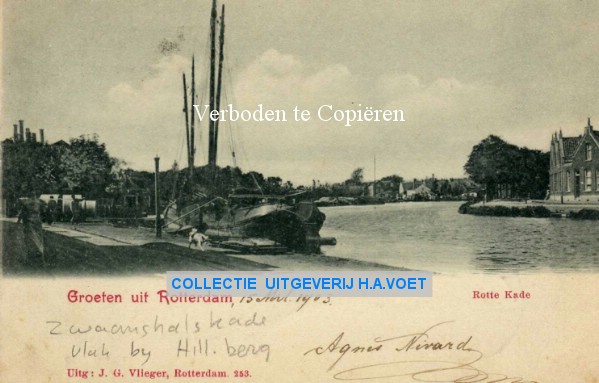 Verboden te Copiëren
COLLECTIE UITGEVERIJ H.A.VOET
Groeten uit Rotterdam, 15 1903.
Rotte Kade
Zwaanshalskade
vlak by Hill.berg
Agnès Nivard
Uitg: J. G. Vlieger, Rotterdam. 253.